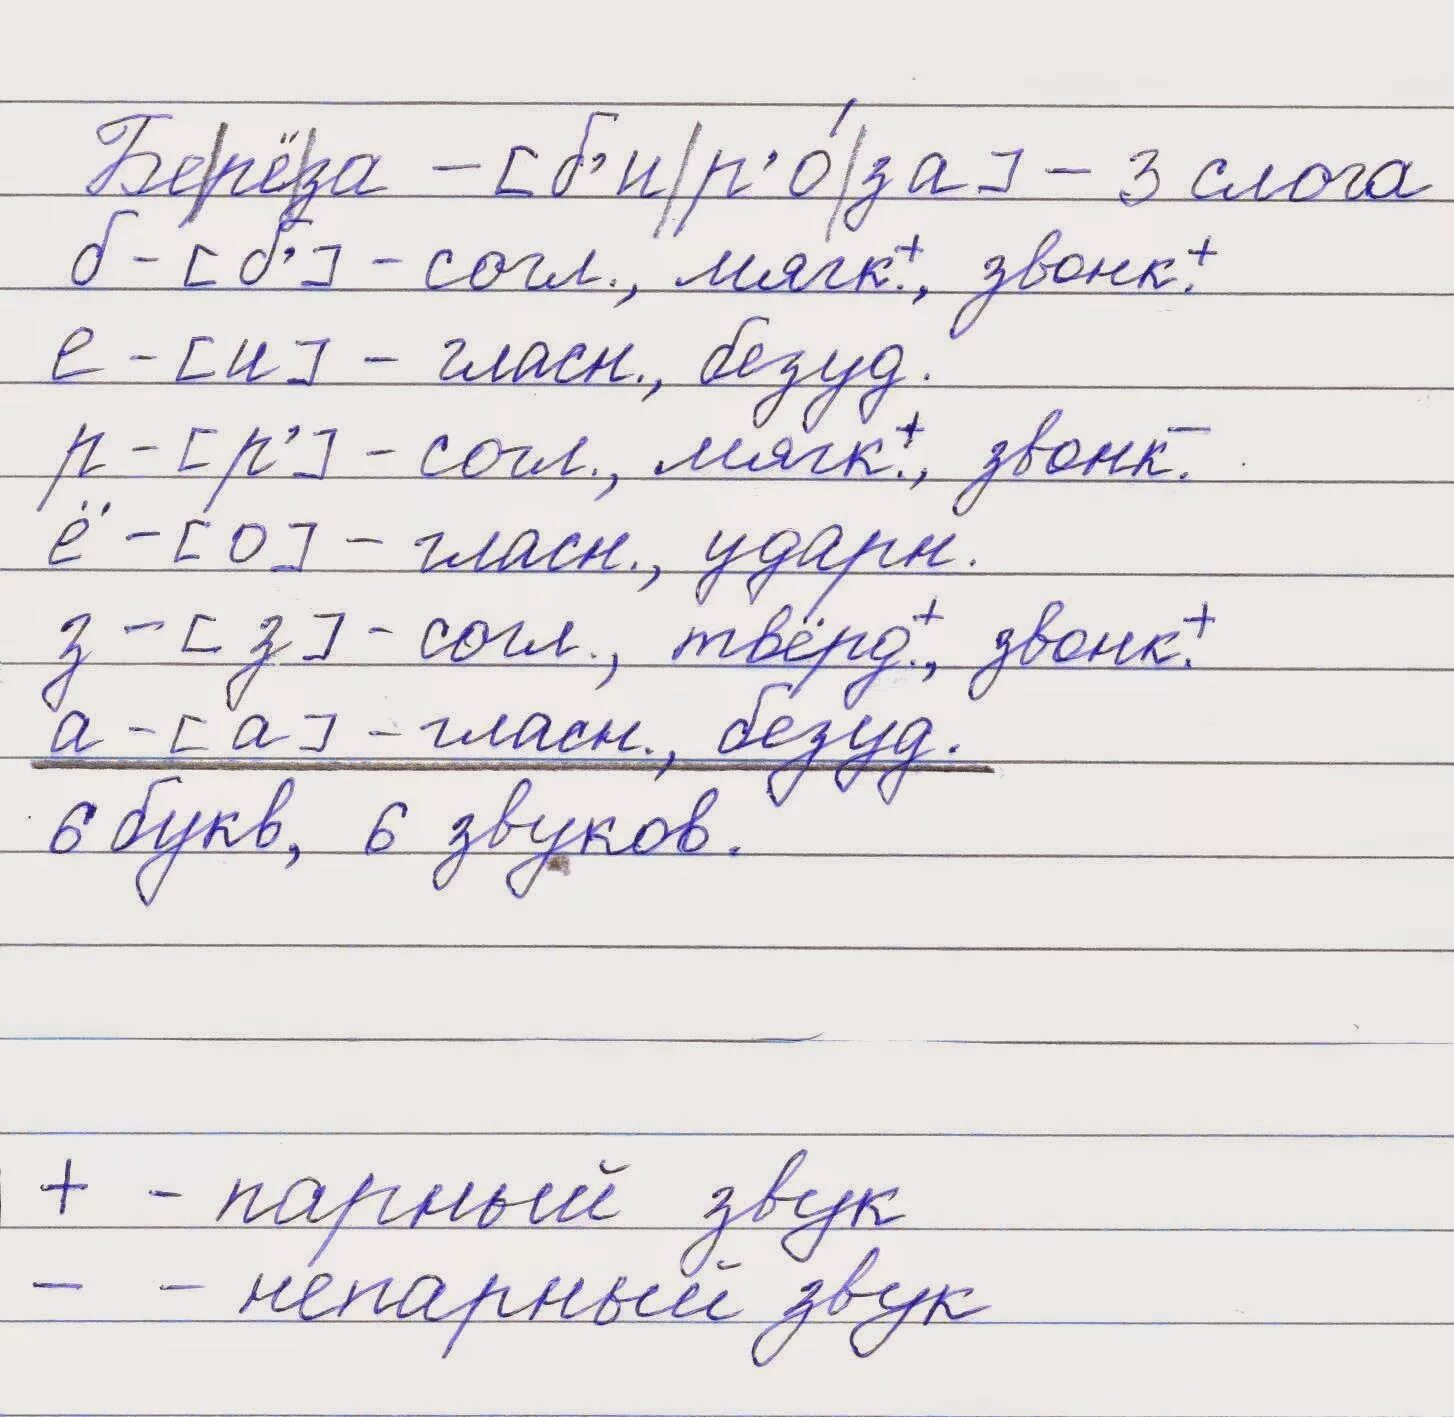 Бе/рё/за - [б’и/р’о́/за] - 3 слога
б - [б’] - согл., мягк.⁺, звонк.⁺
е - [и] - гласн., безуд.
р - [р’] - согл., мягк.⁺, звонк.⁻
ё - [о] - гласн., ударн.
з - [з] - согл., твёрд.⁺, звонк.⁺
а - [а] - гласн., безуд.
6 букв, 6 звуков.
+ - парный звук
- - непарный звук